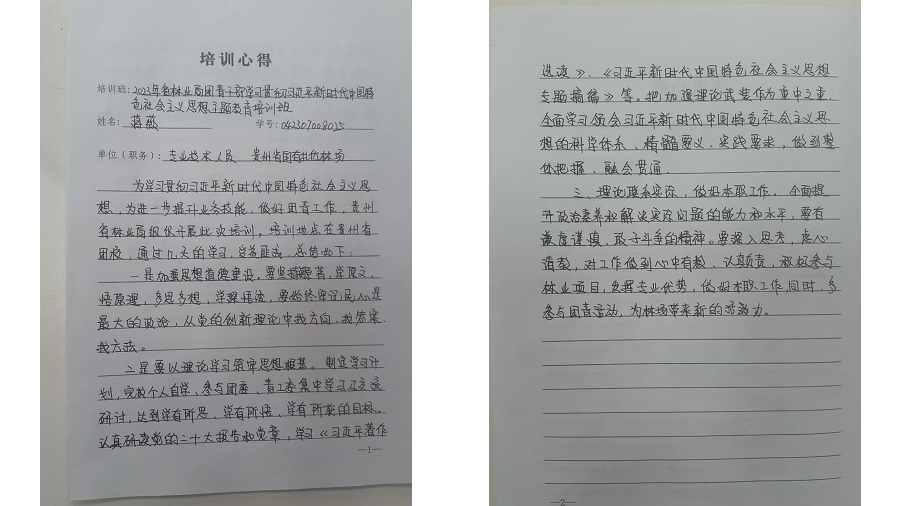 培训心得
培训班:2023年省林业局团青干部学习贯彻习近平新时代中国特
色社会主义思想主题教育培训班
姓名: 蒋薇 学号:042307008025
单位(职务): 专业技术人员 贵州省国有扎佐林场
为学习贯彻习近平新时代中国特色社会主义思
想,为进一步提升业务技能,做好团青工作,贵州
省林业局组织开展此次培训,培训地点在贵州省
团校,通过几天的学习,受益匪浅,总结如下:
一是加强思想道德建设,要坚持读原著,学原文,
悟原理,多思多想,学深悟透,要始终牢记民心是
最大的政治,从党的创新理论中找方向、找答案、
找方法。
二是要以理论学习筑牢思想根基。制定学习计
划,完成个人自学、参与团委、青工委集中学习及交流
研讨,达到学有所思、学有所悟、学有所获的目标。
认真研读党的二十大报告和党章,学习《习近平著作
—1—
选读》、《习近平新时代中国特色社会主义思想
专题摘编》等。把加强理论武装作为重中之重,
全面学习领会习近平新时代中国特色社会主义思
想的科学体系、精髓要义、实践要求,做到整
体把握、融会贯通。
三、理论联系实际,做好本职工作。全面提
升政治素养和解决实际问题的能力和水平,要有
谦虚谨慎、敢于斗争的精神。要深入思考,虚心
请教,对工作做到心中有数、认真负责,积极参与
林业项目,发挥专业优势,做好本职工作,同时,多
参与团青活动,为林场带来新的活力。
—2—